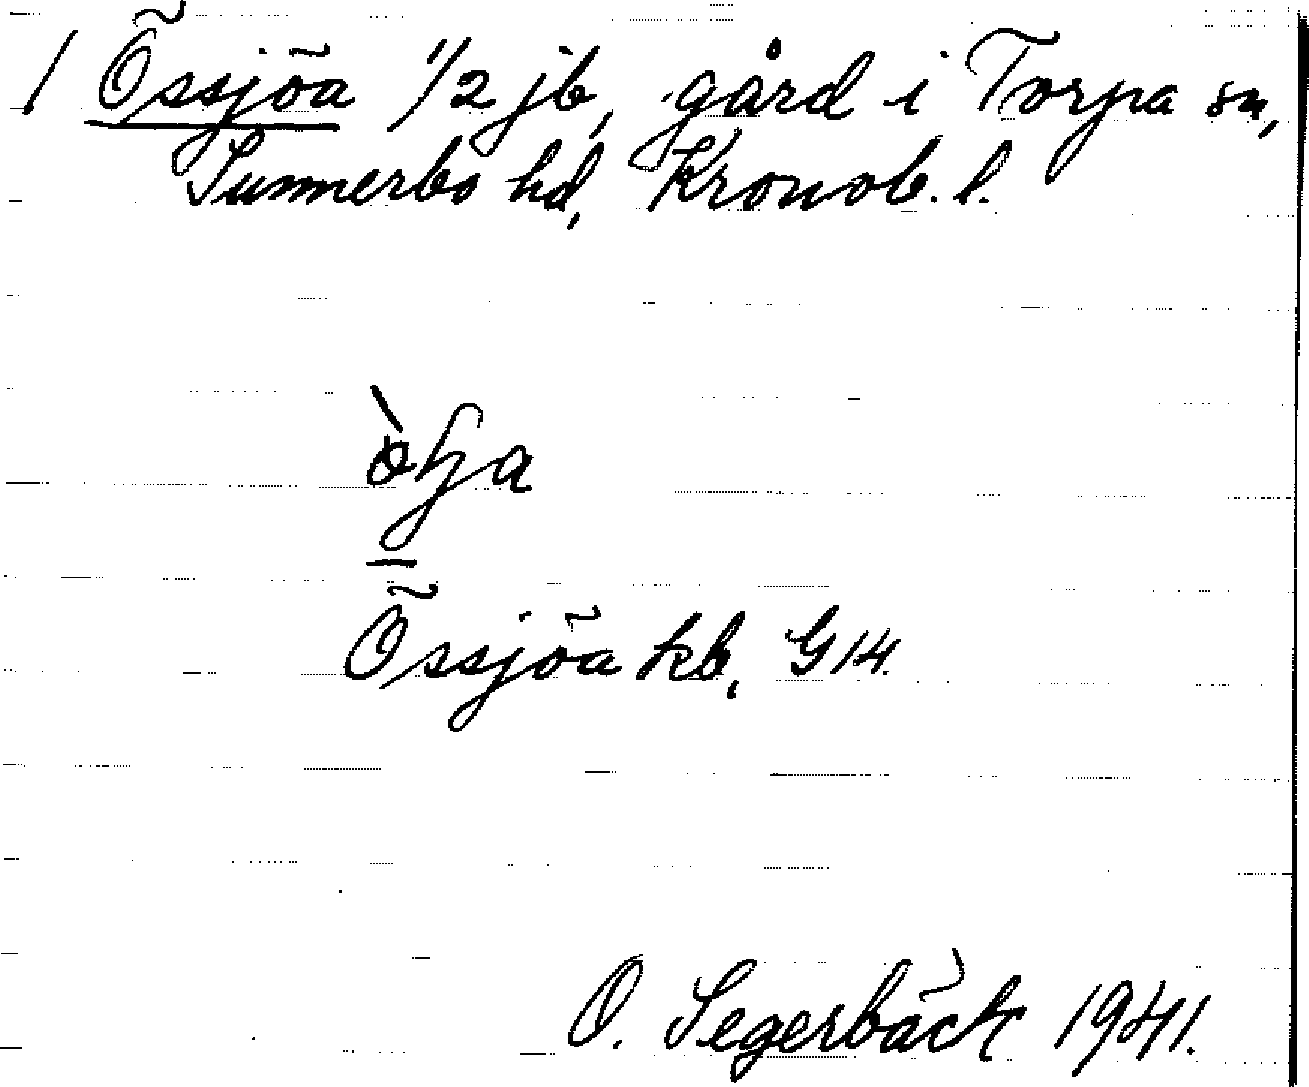 / Össjöa 1/2 jb, gård i Torpa sn,
Sunnerbo hd, Kronob. l.
Össjöa kb, G14.
O. Segerbäck 1941.